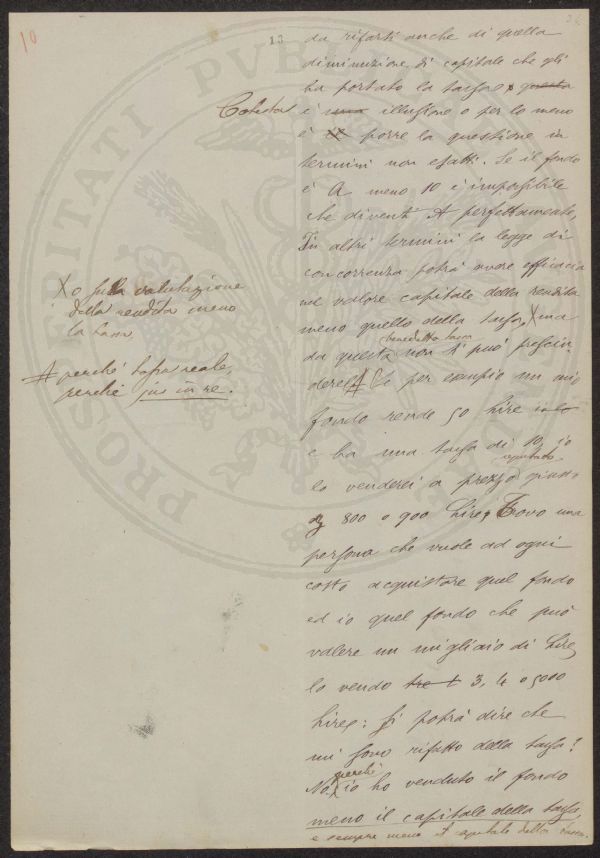 10
13
da rifarsi anche di quella
diminuzione di capitale che gli
ha portato la tassa questa
Cotesta è una illusione o per lo meno
è il porre la questione in
termini non esatti. Se il fondo
è A meno 10 è impossibile
che diventi A perfettamente,
In altri termini la legge di
concorrenza potrà avere efficacia
nel valore capitale della rendita
meno quello della tassa, X ma
X o sulla valutazione
della rendita meno
la tassa.
benedetta tassa
da questa non si può prescin-
dere. # Se per esempio un mio
# perchè tassa reale,
perchè jus in re.
fondo rende 50 lire
e ha una tassa di 10, io
lo venderei a prezzo giusto
di 800 o 900 lire. Trovo una
persona che vuole ad ogni
costo acquistare quel fondo
ed io quel fondo che può
valere un migliaio di lire
lo vendo tre 3, 4 o 5000
lire: si potrà dire che
mi sono rifatto della tassa?
perchè
No. X io ho venduto il fondo
meno il capitale della tassa,
e sempre meno il capitale della tassa.
PROSPERITATI PUBL